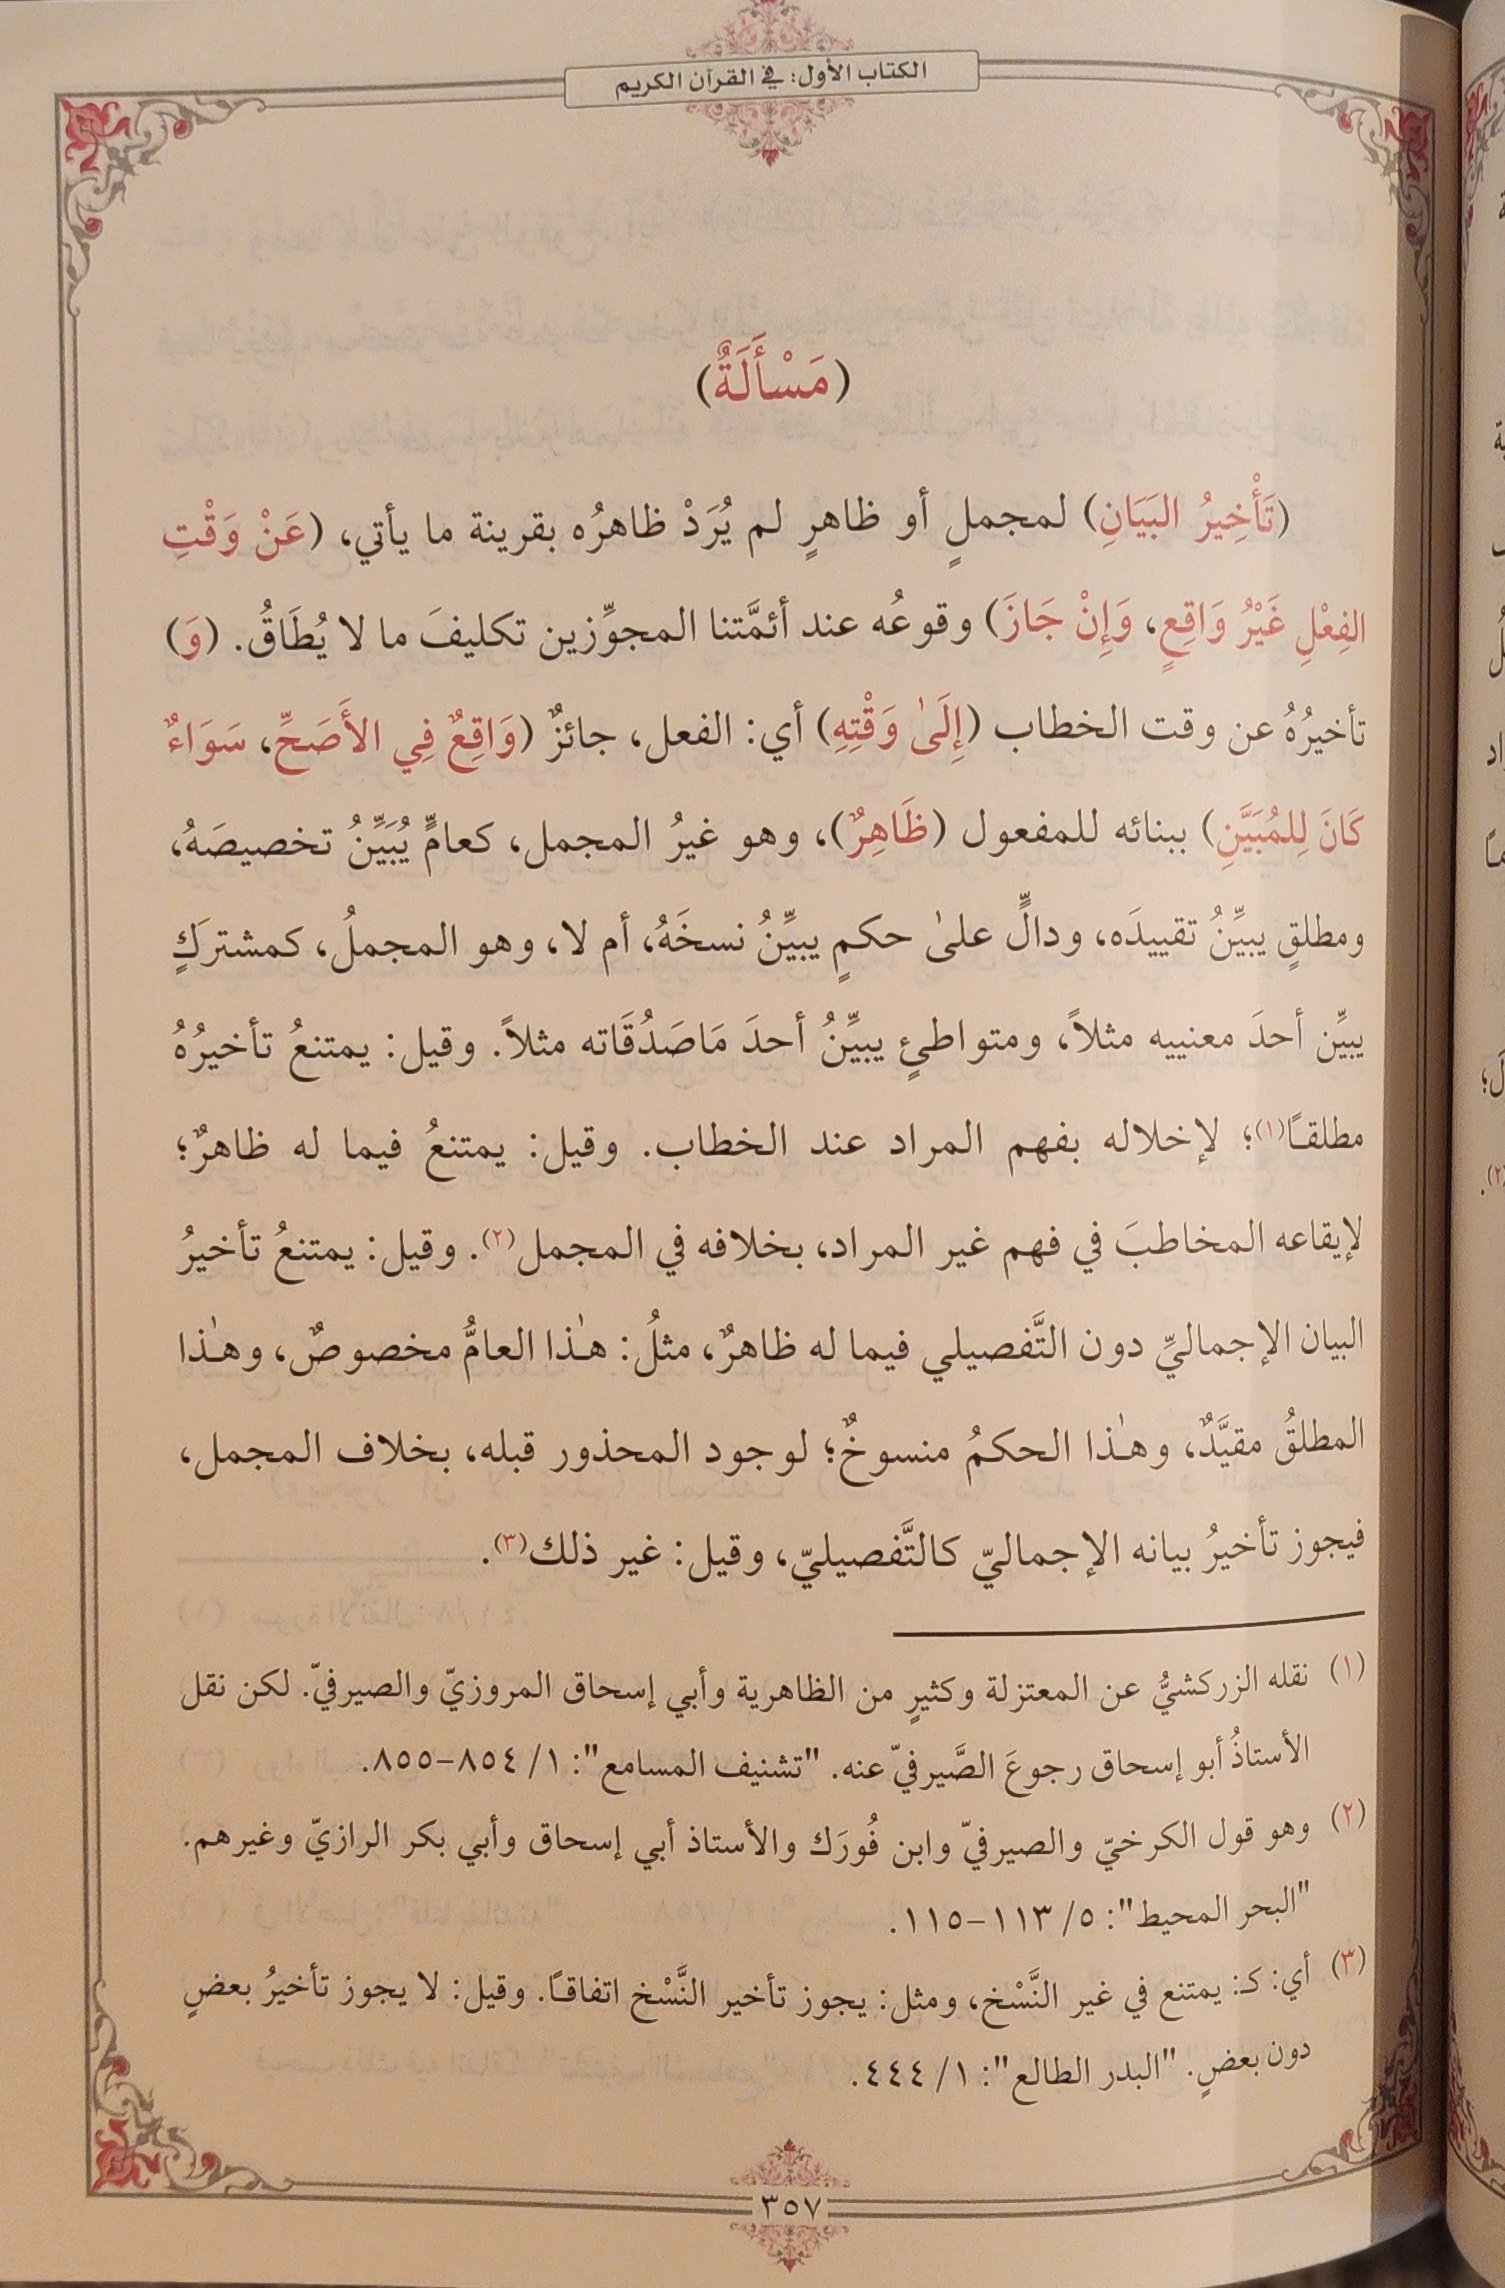 الكتاب الأول: في القرآن الكريم
(مَسْأَلَةٌ)
(تَأْخِيرُ البَيَانِ) لمجملٍ أو ظاهرٍ لم يُرَدْ ظاهرُه بقرينة ما يأتي، (عَنْ وَقْتِ
الفِعْلِ غَيْرُ وَاقِعٍ، وَإِنْ جَازَ) وقوعُه عند أئمَّتنا المجوِّزين تكليفَ ما لا يُطَاقُ. (وَ)
تأخيرُهُ عن وقت الخطاب (إِلَىٰ وَقْتِهِ) أي: الفعل، جائزٌ (وَاقِعٌ فِي الأَصَحِّ، سَوَاءٌ
كَانَ لِلمُبَيَّنِ) ببنائه للمفعول (ظَاهِرٌ)، وهو غيرُ المجمل، كعامٍّ يُبَيِّنُ تخصيصَهُ،
ومطلقٍ يبيِّنُ تقييدَه، ودالٍّ علىٰ حكمٍ يبيِّنُ نسخَهُ، أم لا، وهو المجملُ، كمشتركٍ
يبيِّن أحدَ معنييه مثلاً، ومتواطئٍ يبيِّنُ أحدَ مَاصَدُقَاته مثلاً. وقيل: يمتنعُ تأخيرُهُ
مطلقًا(١)؛ لإخلاله بفهم المراد عند الخطاب. وقيل: يمتنعُ فيما له ظاهرٌ؛
لإيقاعه المخاطبَ في فهم غير المراد، بخلافه في المجمل(٢). وقيل: يمتنعُ تأخيرُ
البيان الإجماليِّ دون التَّفصيلي فيما له ظاهرٌ، مثلُ: هٰذا العامُّ مخصوصٌ، وهٰذا
المطلقُ مقيَّدٌ، وهٰذا الحكمُ منسوخٌ؛ لوجود المحذور قبله، بخلاف المجمل،
فيجوز تأخيرُ بيانه الإجماليّ كالتَّفصيليّ، وقيل: غير ذلك(٣).
(١) نقله الزركشيُّ عن المعتزلة وكثيرٍ من الظاهرية وأبي إسحاق المروزيّ والصيرفيّ. لكن نقل
الأستاذُ أبو إسحاق رجوعَ الصَّيرفيّ عنه. "تشنيف المسامع": ١/ ٨٥٤-٨٥٥.
(٢) وهو قول الكرخيّ والصيرفيّ وابن فُورَك والأستاذ أبي إسحاق وأبي بكر الرازيّ وغيرهم.
"البحر المحيط": ٥/ ١١٣-١١٥.
(٣) أي: كـ: يمتنع في غير النَّسْخ، ومثل: يجوز تأخير النَّسْخ اتفاقًا. وقيل: لا يجوز تأخيرُ بعضٍ
دون بعضٍ. "البدر الطالع": ١/ ٤٤٤.
٣٥٧